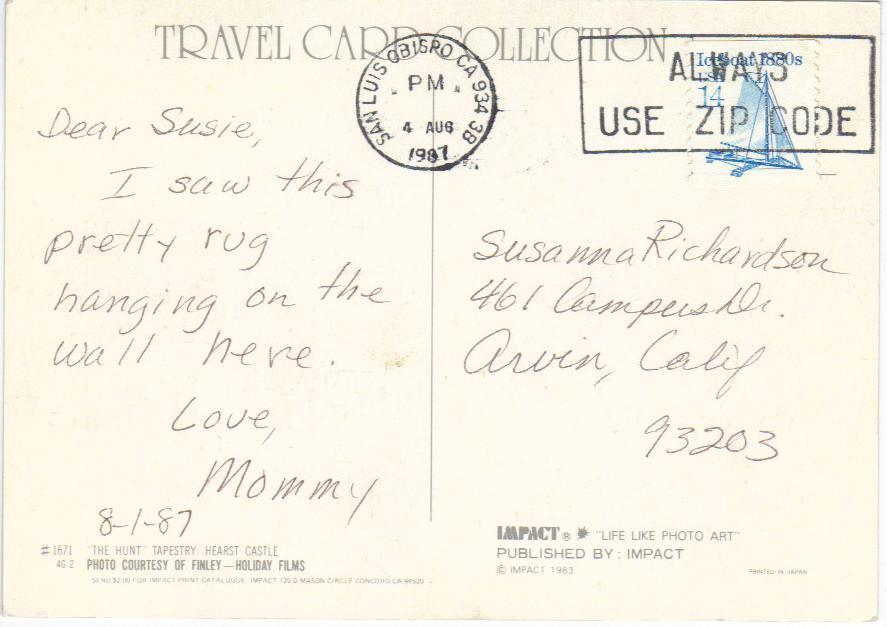 TRAVEL CARD COLLECTION
SAN LUIS OBISPO CA 934 3B
PM
4 AUG
1987
ALWAYS
USE ZIP CODE
Iceboat 1880s
USA
14
Dear Susie,
I saw this
pretty rug
hanging on the
wall here.
Love,
Mommy
8-1-87
Susanna Richardson
461 Campus Dr.
Arvin, Calif
93203
#1671 "THE HUNT" TAPESTRY: HEARST CASTLE
4G-2 PHOTO COURTESY OF FINLEY—HOLIDAY FILMS
SEND $2.00 FOR IMPACT PRINT CATALOGUE IMPACT 125 D MASON CIRCLE CONCORD CA 94520
IMPACT® "LIFE LIKE PHOTO ART"
PUBLISHED BY: IMPACT
© IMPACT 1983
PRINTED IN JAPAN